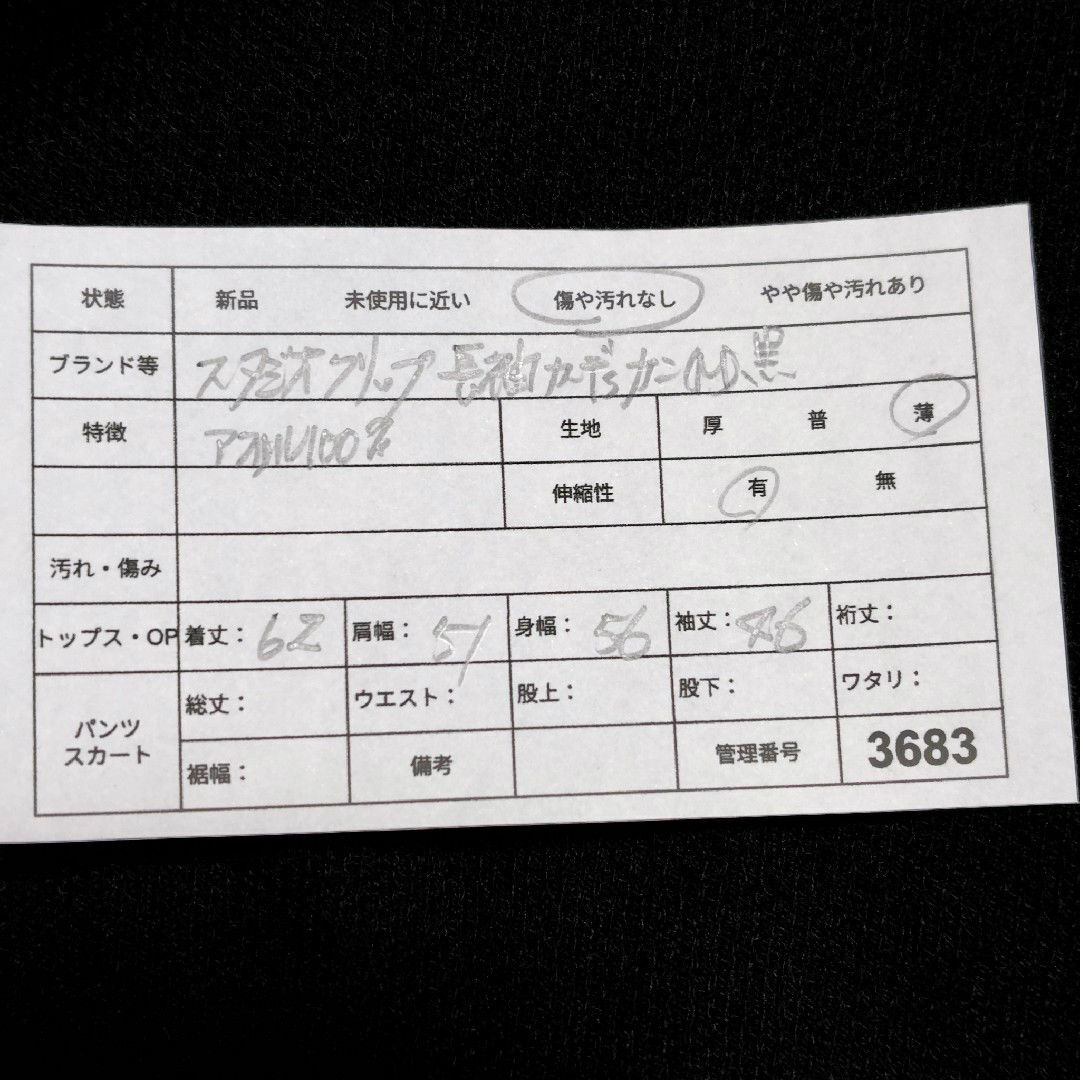 状態 新品 未使用に近い 傷や汚れなし やや傷や汚れあり
ブランド等 スタジオクリップ 長袖カーデガン 黒
特徴 アクリル100% 生地 厚 普 薄
伸縮性 有 無
汚れ・傷み
トップス・OP 着丈: 62 肩幅: 51 身幅: 56 袖丈: 46 裄丈:
パンツ スカート 総丈: ウエスト: 股上: 股下: ワタリ:
裾幅: 備考 管理番号 3683